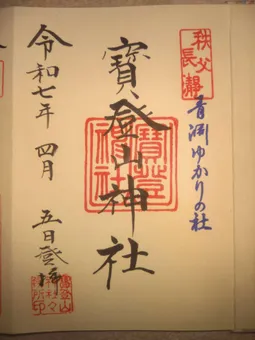 秩父
長瀞
青淵ゆかりの社
寳登山神社
寳登山神社
令和七年 四月 五日登拝